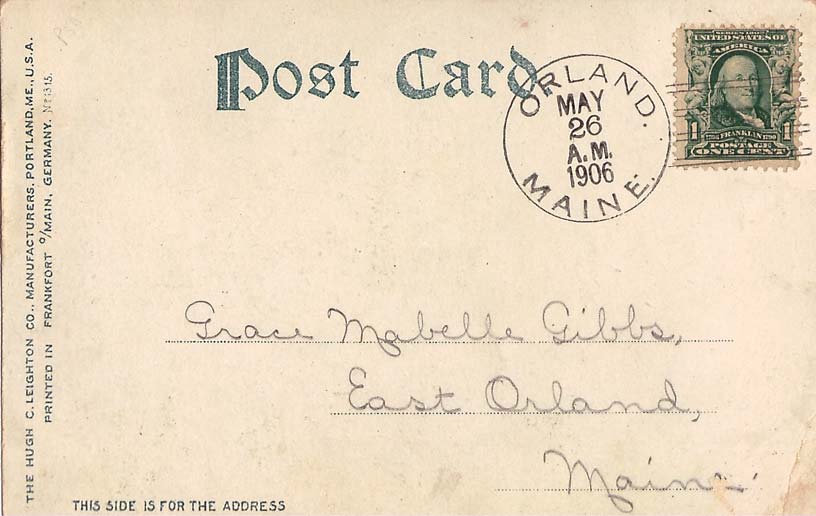 Post Card
ORLAND.
MAY
26
A.M.
1906
MAINE.
SERIES 1902
UNITED STATES OF
AMERICA
1 FRANKLIN 1
POSTAGE
ONE CENT
Grace Mabelle Gibbs,
East Orland,
Maine
THIS SIDE IS FOR THE ADDRESS
THE HUGH C. LEIGHTON CO., MANUFACTURERS, PORTLAND, ME., U.S.A.
PRINTED IN FRANKFORT o/MAIN, GERMANY. No 1315.